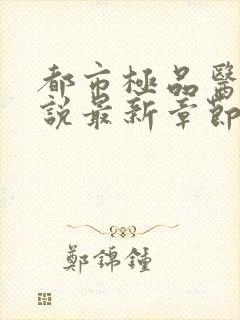 都市極品醫
說最新章節
鄭錦鍾